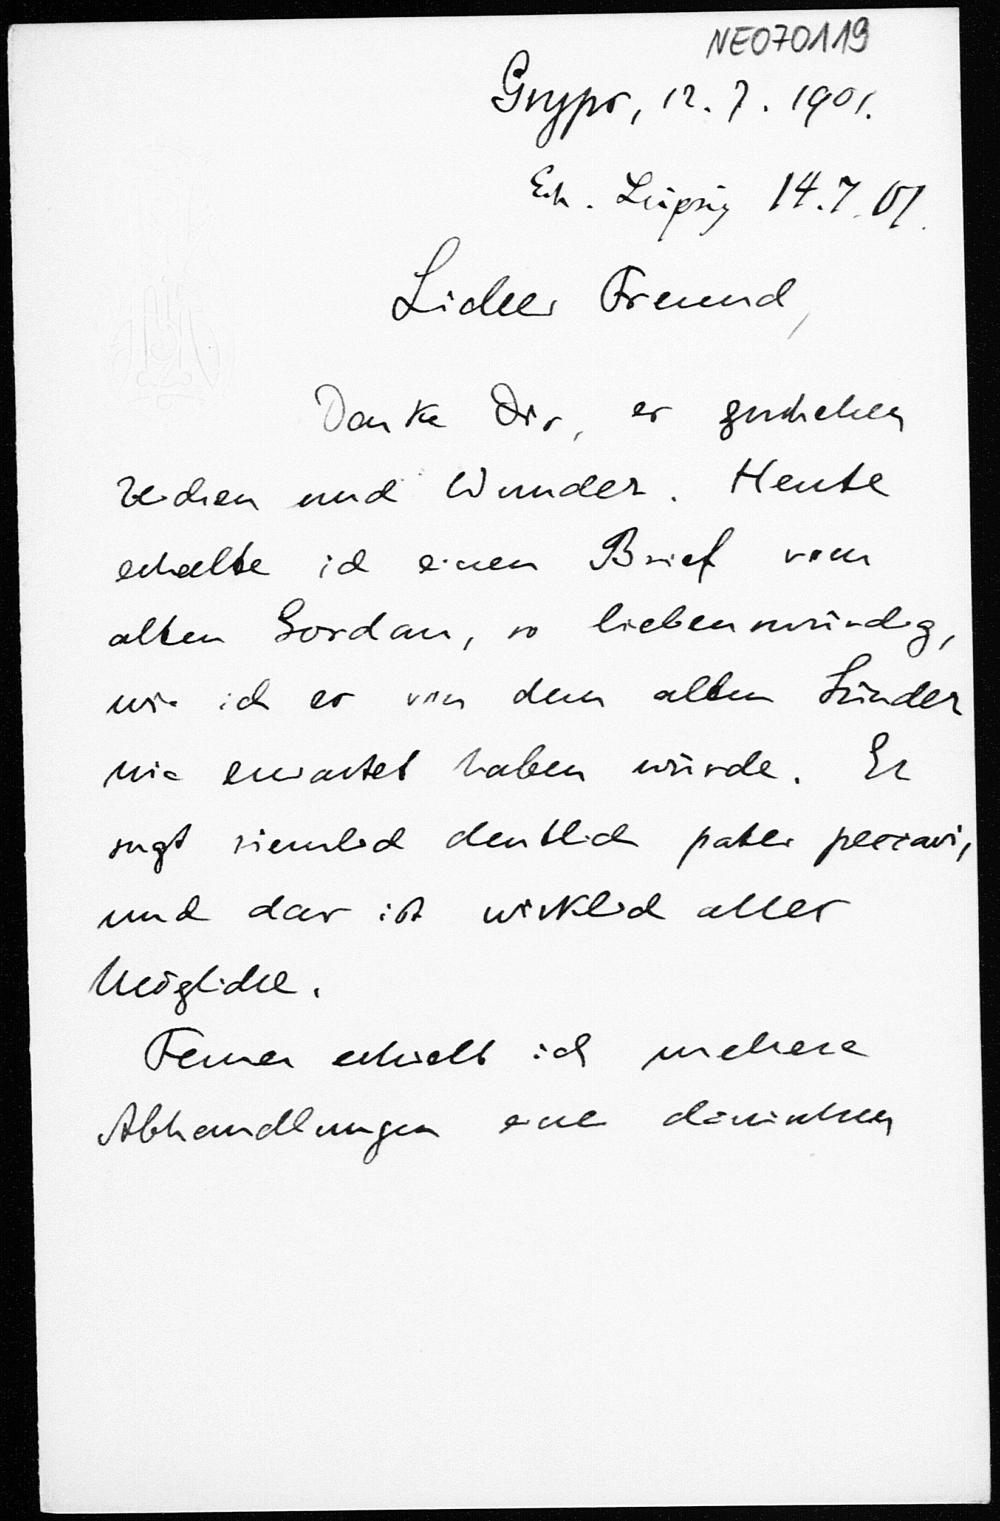 NE070119
Gryps, 12. 7. 1901.
Erh. Leipzig 14.7.01.
Lieber Freund,
Denke Dir, es geschehen
Zeichen und Wunder. Heute
erhalte ich einen Brief vom
alten Gordan, so liebenswürdig,
wie ich es von dem alten Sünder
nie erwartet haben würde. Er
sagt ziemlich deutlich pater peccavi,
und das ist wirklich alles
Mögliche.
Ferner erhielt ich mehrere
Abhandlungen eines dänischen